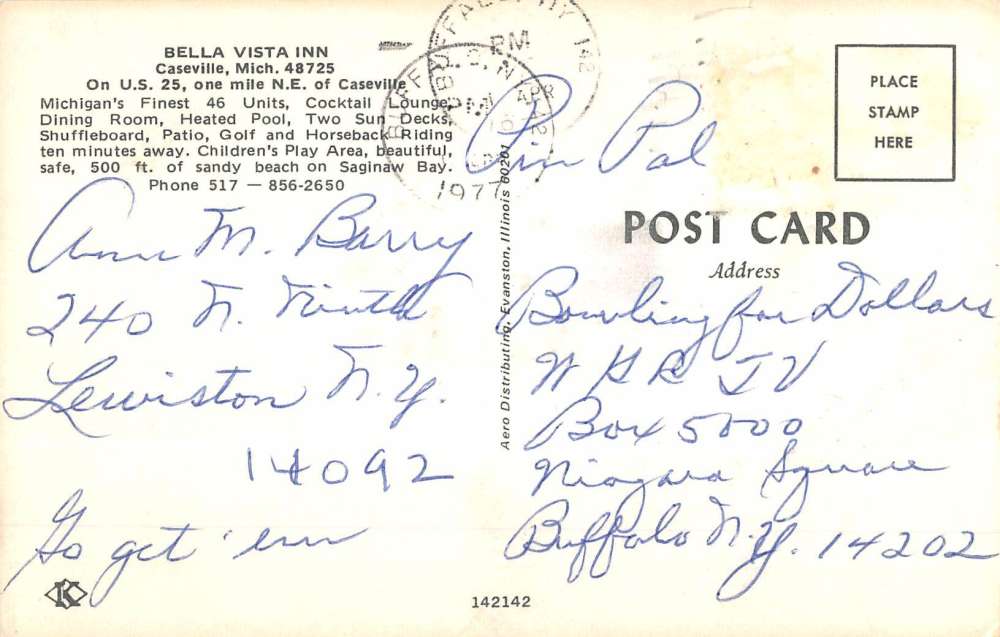 BELLA VISTA INN
Caseville, Mich. 48725
On U.S. 25, one mile N.E. of Caseville
Michigan's Finest 46 Units, Cocktail Lounge,
Dining Room, Heated Pool, Two Sun Decks,
Shuffleboard, Patio, Golf and Horseback Riding
ten minutes away. Children's Play Area, beautiful,
safe, 500 ft. of sandy beach on Saginaw Bay.
Phone 517 — 856-2650
PM
APR
1977
142
Pin Pal
PLACE
STAMP
HERE
Ann M. Barry
240 N. Ninth
Lewiston N.Y.
14092
Go get 'em
Aero Distributing, Evanston, Illinois 60201
POST CARD
Address
Bowling for Dollars
W G R TV
Box 5000
Niagara Square
Buffalo N.Y. 14202
K
142142